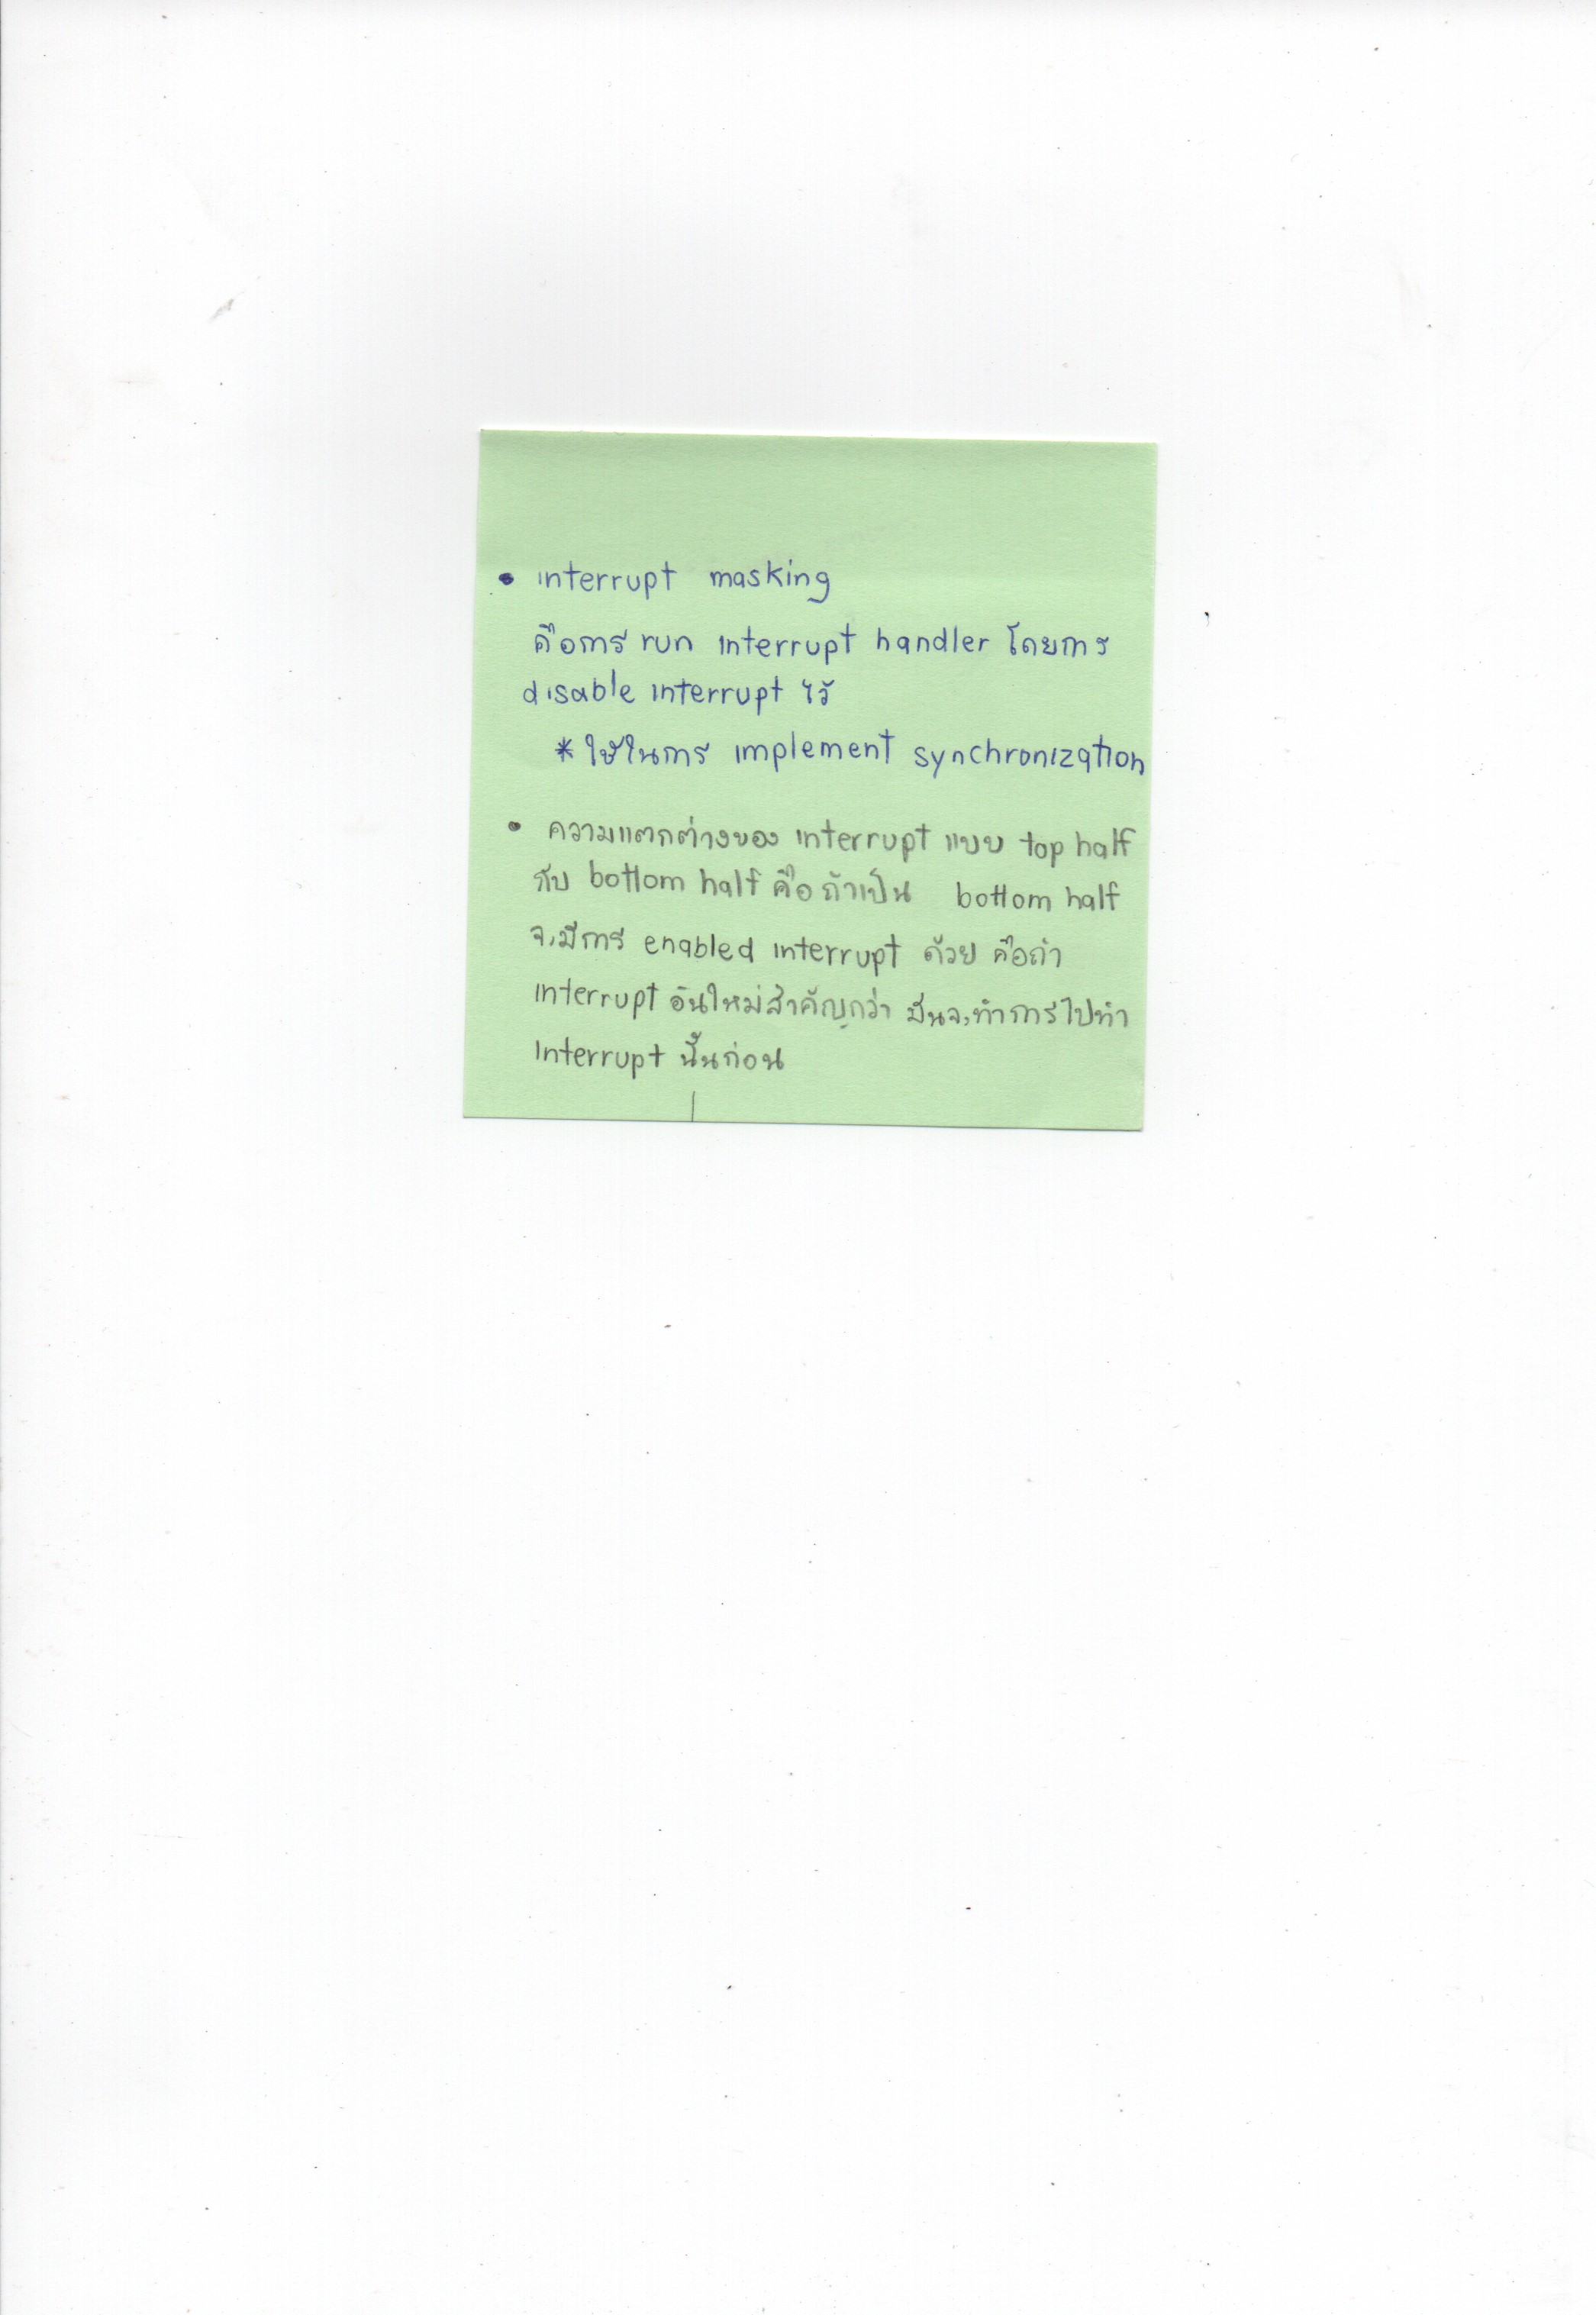 • interrupt masking
คือการ run interrupt handler โดยการ
disable interrupt ไว้
* ใช้ในการ implement synchronization
• ความแตกต่างของ interrupt แบบ top half
กับ bottom half คือ ถ้าเป็น bottom half
จะมีการ enabled interrupt ด้วย คือถ้า
interrupt อันใหม่สำคัญกว่า มันจะทำการไปทำ
interrupt นั้นก่อน